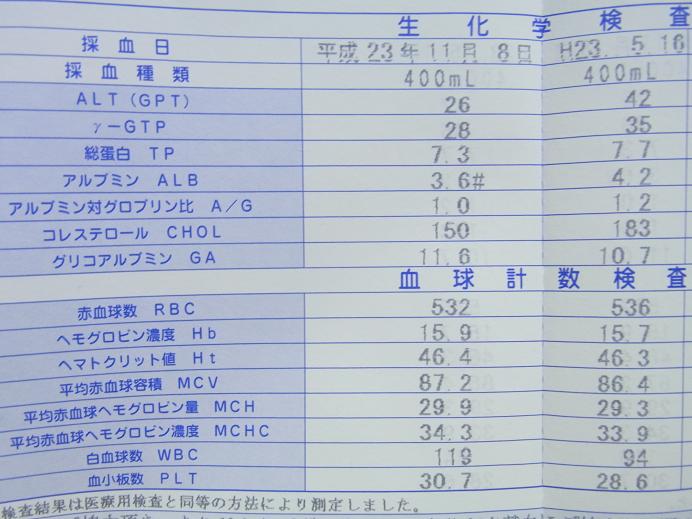 生化学検査
採血日 平成23年11月 8日 H23. 5.16
採血種類 400mL 400mL
ALT(GPT) 26 42
γ-GTP 28 35
総蛋白 TP 7.3 7.7
アルブミン ALB 3.6# 4.2
アルブミン対グロブリン比 A/G 1.0 1.2
コレステロール CHOL 150 183
グリコアルブミン GA 11.6 10.7
血球計数検査
赤血球数 RBC 532 536
ヘモグロビン濃度 Hb 15.9 15.7
ヘマトクリット値 Ht 46.4 46.3
平均赤血球容積 MCV 87.2 86.4
平均赤血球ヘモグロビン量 MCH 29.9 29.3
平均赤血球ヘモグロビン濃度 MCHC 34.3 33.9
白血球数 WBC 119 94
血小板数 PLT 30.7 28.6
検査結果は医療用検査と同等の方法により測定しました。